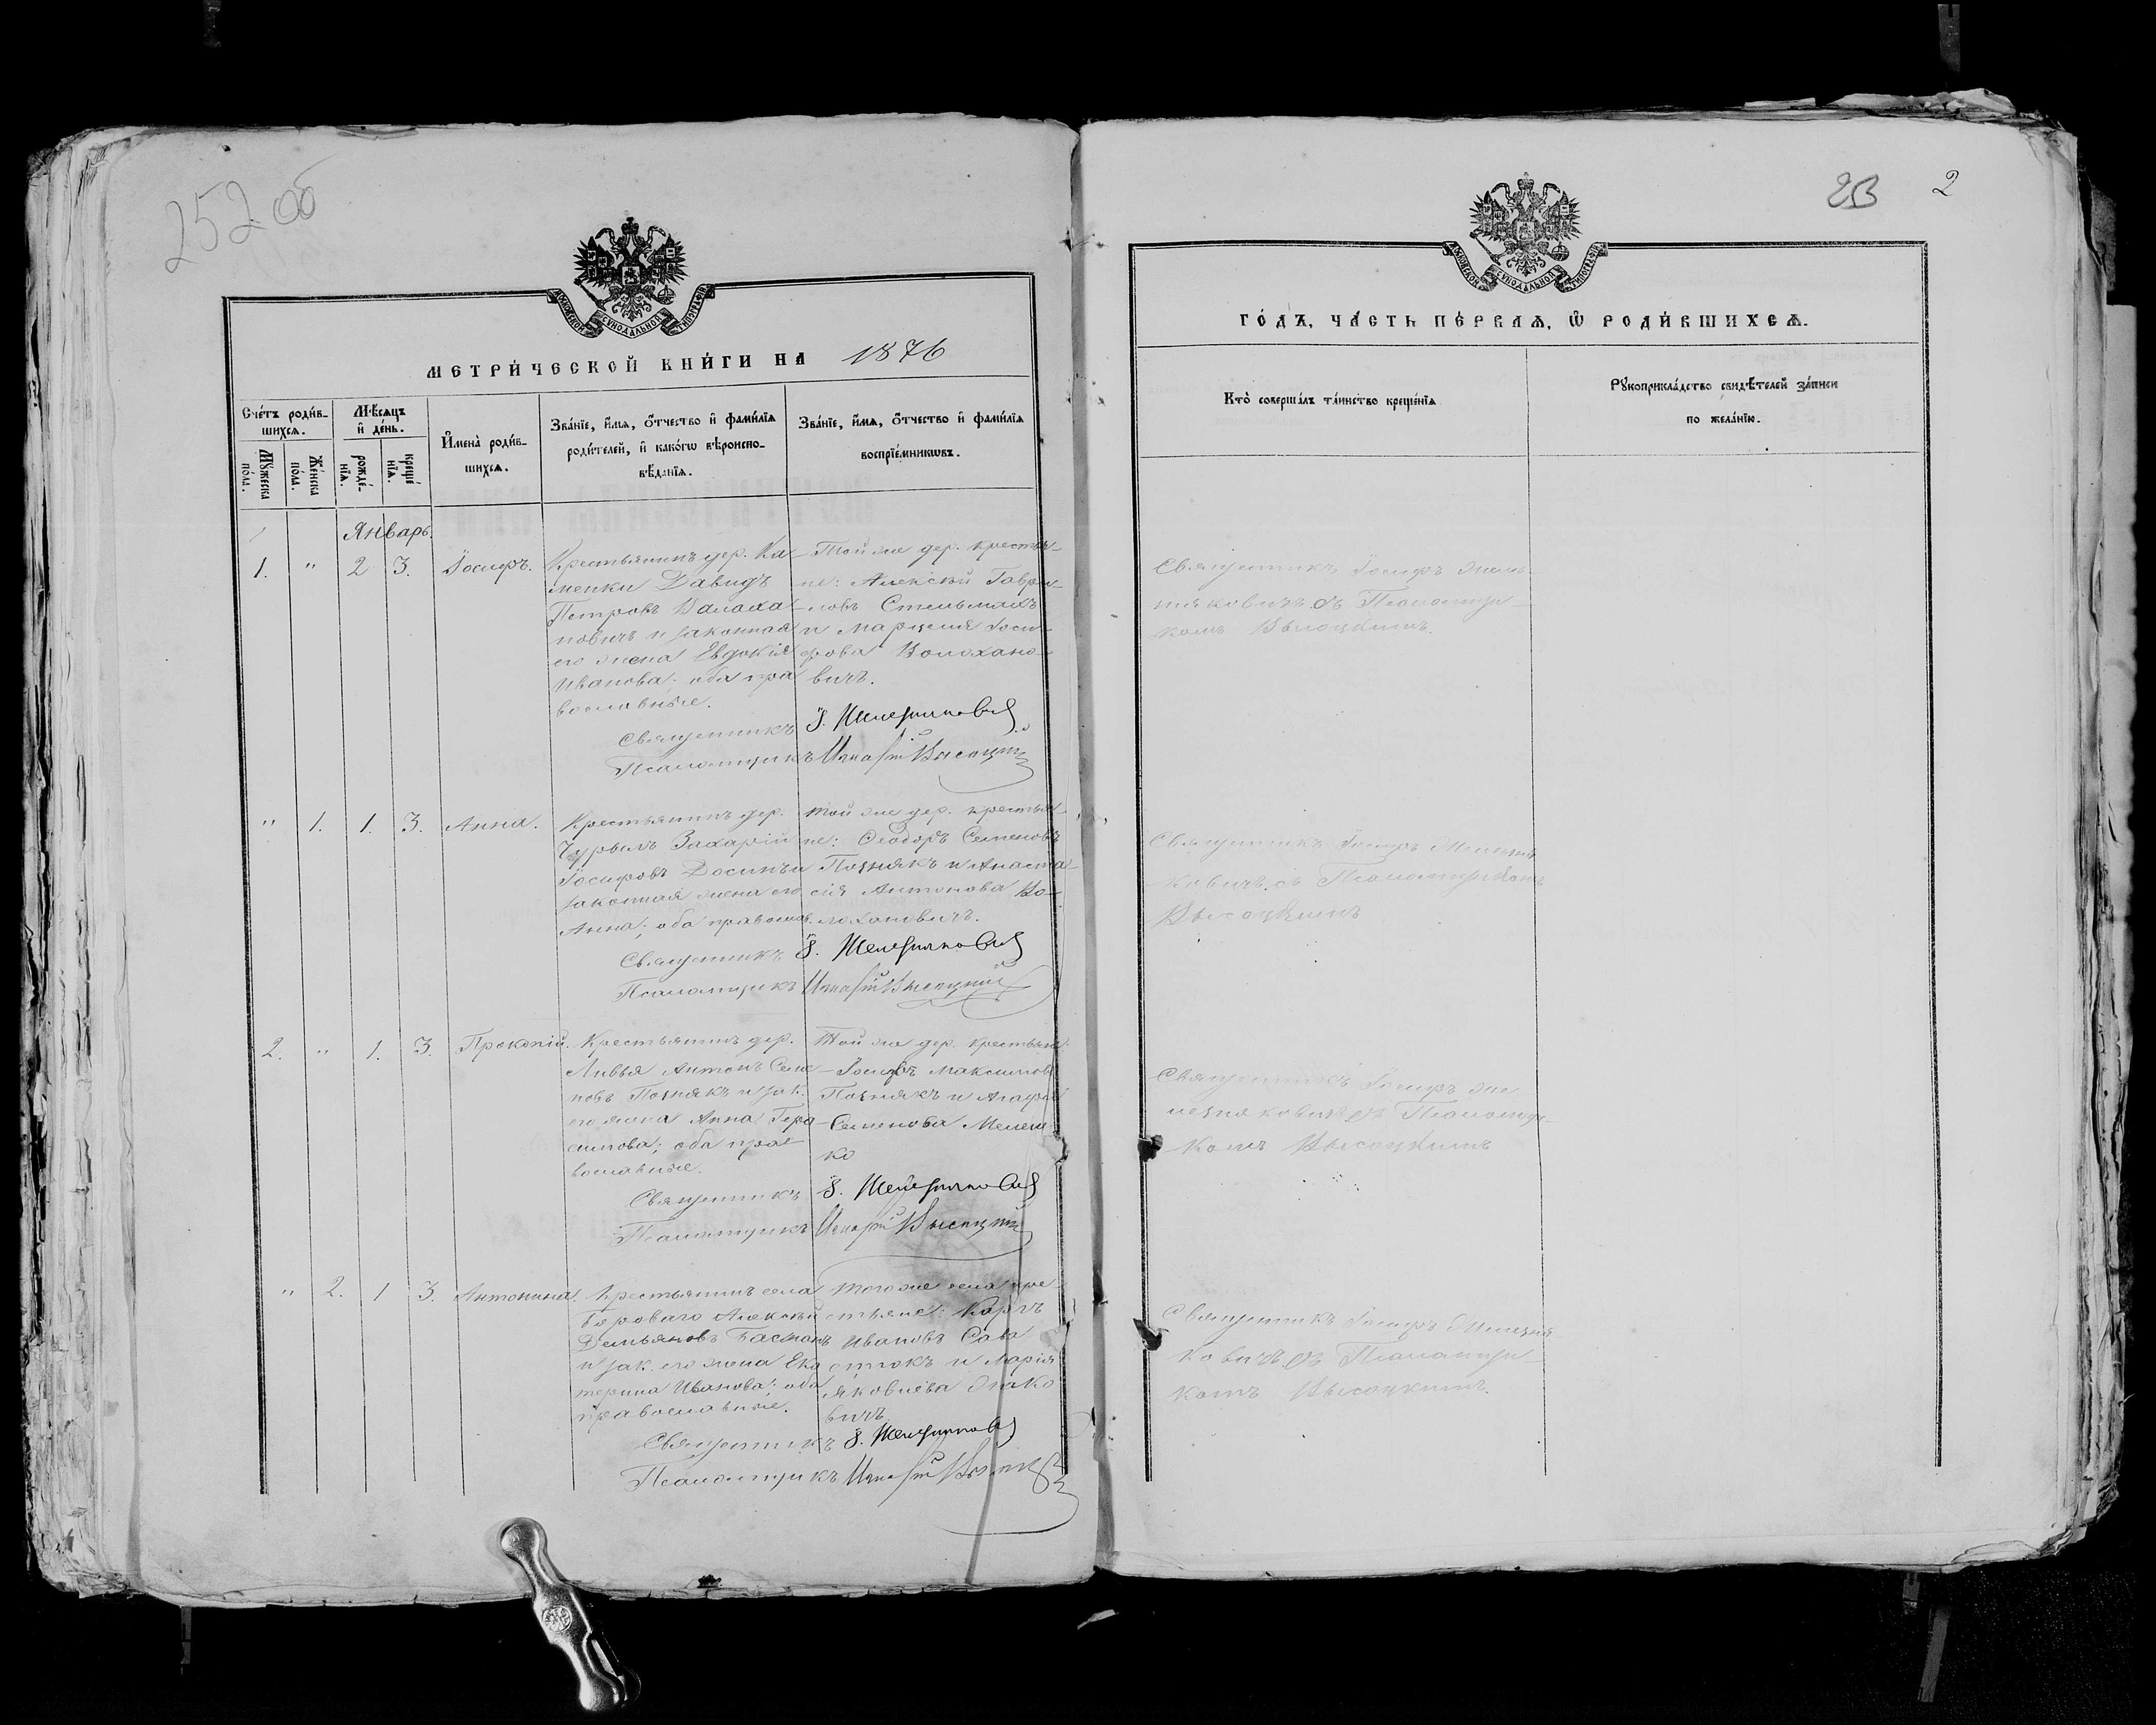 252 об
МОСКОВСКОЙ СѴНОДАЛЬНОЙ ТИПОГРАФІИ
МЕТРИ́ЧЕСКОЙ КНИ́ГИ НА 1876
Сче́тъ роди́в-
шихсѧ.
Мꙋ́жеска
по́ла.
Же́нска
по́ла.
Мѣ́сѧцъ
и҆ де́нь.
рожде́-
нїѧ.
креще́
нїѧ.
И҆мена̀ роди́в-
шихсѧ.
Зва́нїе, и҆́мѧ, ѻ҆́тчество и҆ фами́лїѧ
роди́телей, и҆ како́гѡ вѣроиспо-
вѣ́данїѧ.
Зва́нїе, и҆́мѧ, ѻ҆́тчество и҆ фами́лїѧ
воспрїе́мникѡвъ.
Январь.
1. " 2 3. Іосифъ.
Крестьянинъ дер. Ка-
менки Давидъ
Петровъ Валаха-
новичъ и законная
его жена Евдокія
Иванова; оба пра
вославные.
Той же дер. крестья-
не: Алексѣй Гаври-
ловъ Стельмахъ
и Марцеля Іоси-
фова Волохано-
вичъ.
Священникъ І. Желѣзняковичъ
Псаломщикъ Игнатій Высоцкій
" 1. 1. 3. Анна.
Крестьянинъ дер.
Чурылъ Захарій
Іосифовъ Досинъ и
законная жена его
Анна; оба православ.
Той же дер. крестья-
не: Ѳеодоръ Семеновъ
Познякъ и Анаста-
сія Антонова Во-
лохановичъ.
Священникъ І. Желѣзняковичъ
Псаломщикъ Игнатій Высоцкій
2. " 1. 3. Прокопій.
Крестьянинъ дер.
Ливья Антонъ Семе-
новъ Познякъ и зак.
его жена Анна Гера-
симова; оба пра-
вославные.
Той же дер. крестьяне:
Іосифъ Максимовъ
Познякъ и Агафія
Семенова Мелеш-
ко
Священникъ І. Желѣзняковичъ
Псаломщикъ Игнатій Высоцкій
" 2. 1 3. Антонина.
Крестьянинъ села
Бороваго Алексѣй
Демьяновъ
и зак. его жена Ека
терина Иванова; оба
православные.
Того же села кре-
стьяне: Карпъ
Ивановъ
и Марія
Яковлева
Священникъ І. Желѣзняковичъ
Псаломщикъ Игнатій Высоцкій
2
МОСКОВСКОЙ СѴНОДАЛЬНОЙ ТИПОГРАФІИ
ГО́ДЪ, ЧА́СТЬ ПЕ́РВАѦ, Ѡ҆ РОДИ́ВШИХСѦ.
Кто̀ соверша́лъ та́инство креще́нїѧ
Рꙋкоприкла́дство свидѣ́телей за́писи
по жела́нїю.
Священникъ Іосифъ Желѣз-
няковичъ съ Псаломщи-
комъ Высоцкимъ.
Священникъ Іосифъ Желѣзня
ковичъ съ Псаломщикомъ
Высоцкимъ
Священникъ Іосифъ Же
лѣзняковичъ съ Псаломщи-
комъ Высоцкимъ
Священникъ Іосифъ Желѣзня
ковичъ съ Псаломщи-
комъ Высоцкимъ.